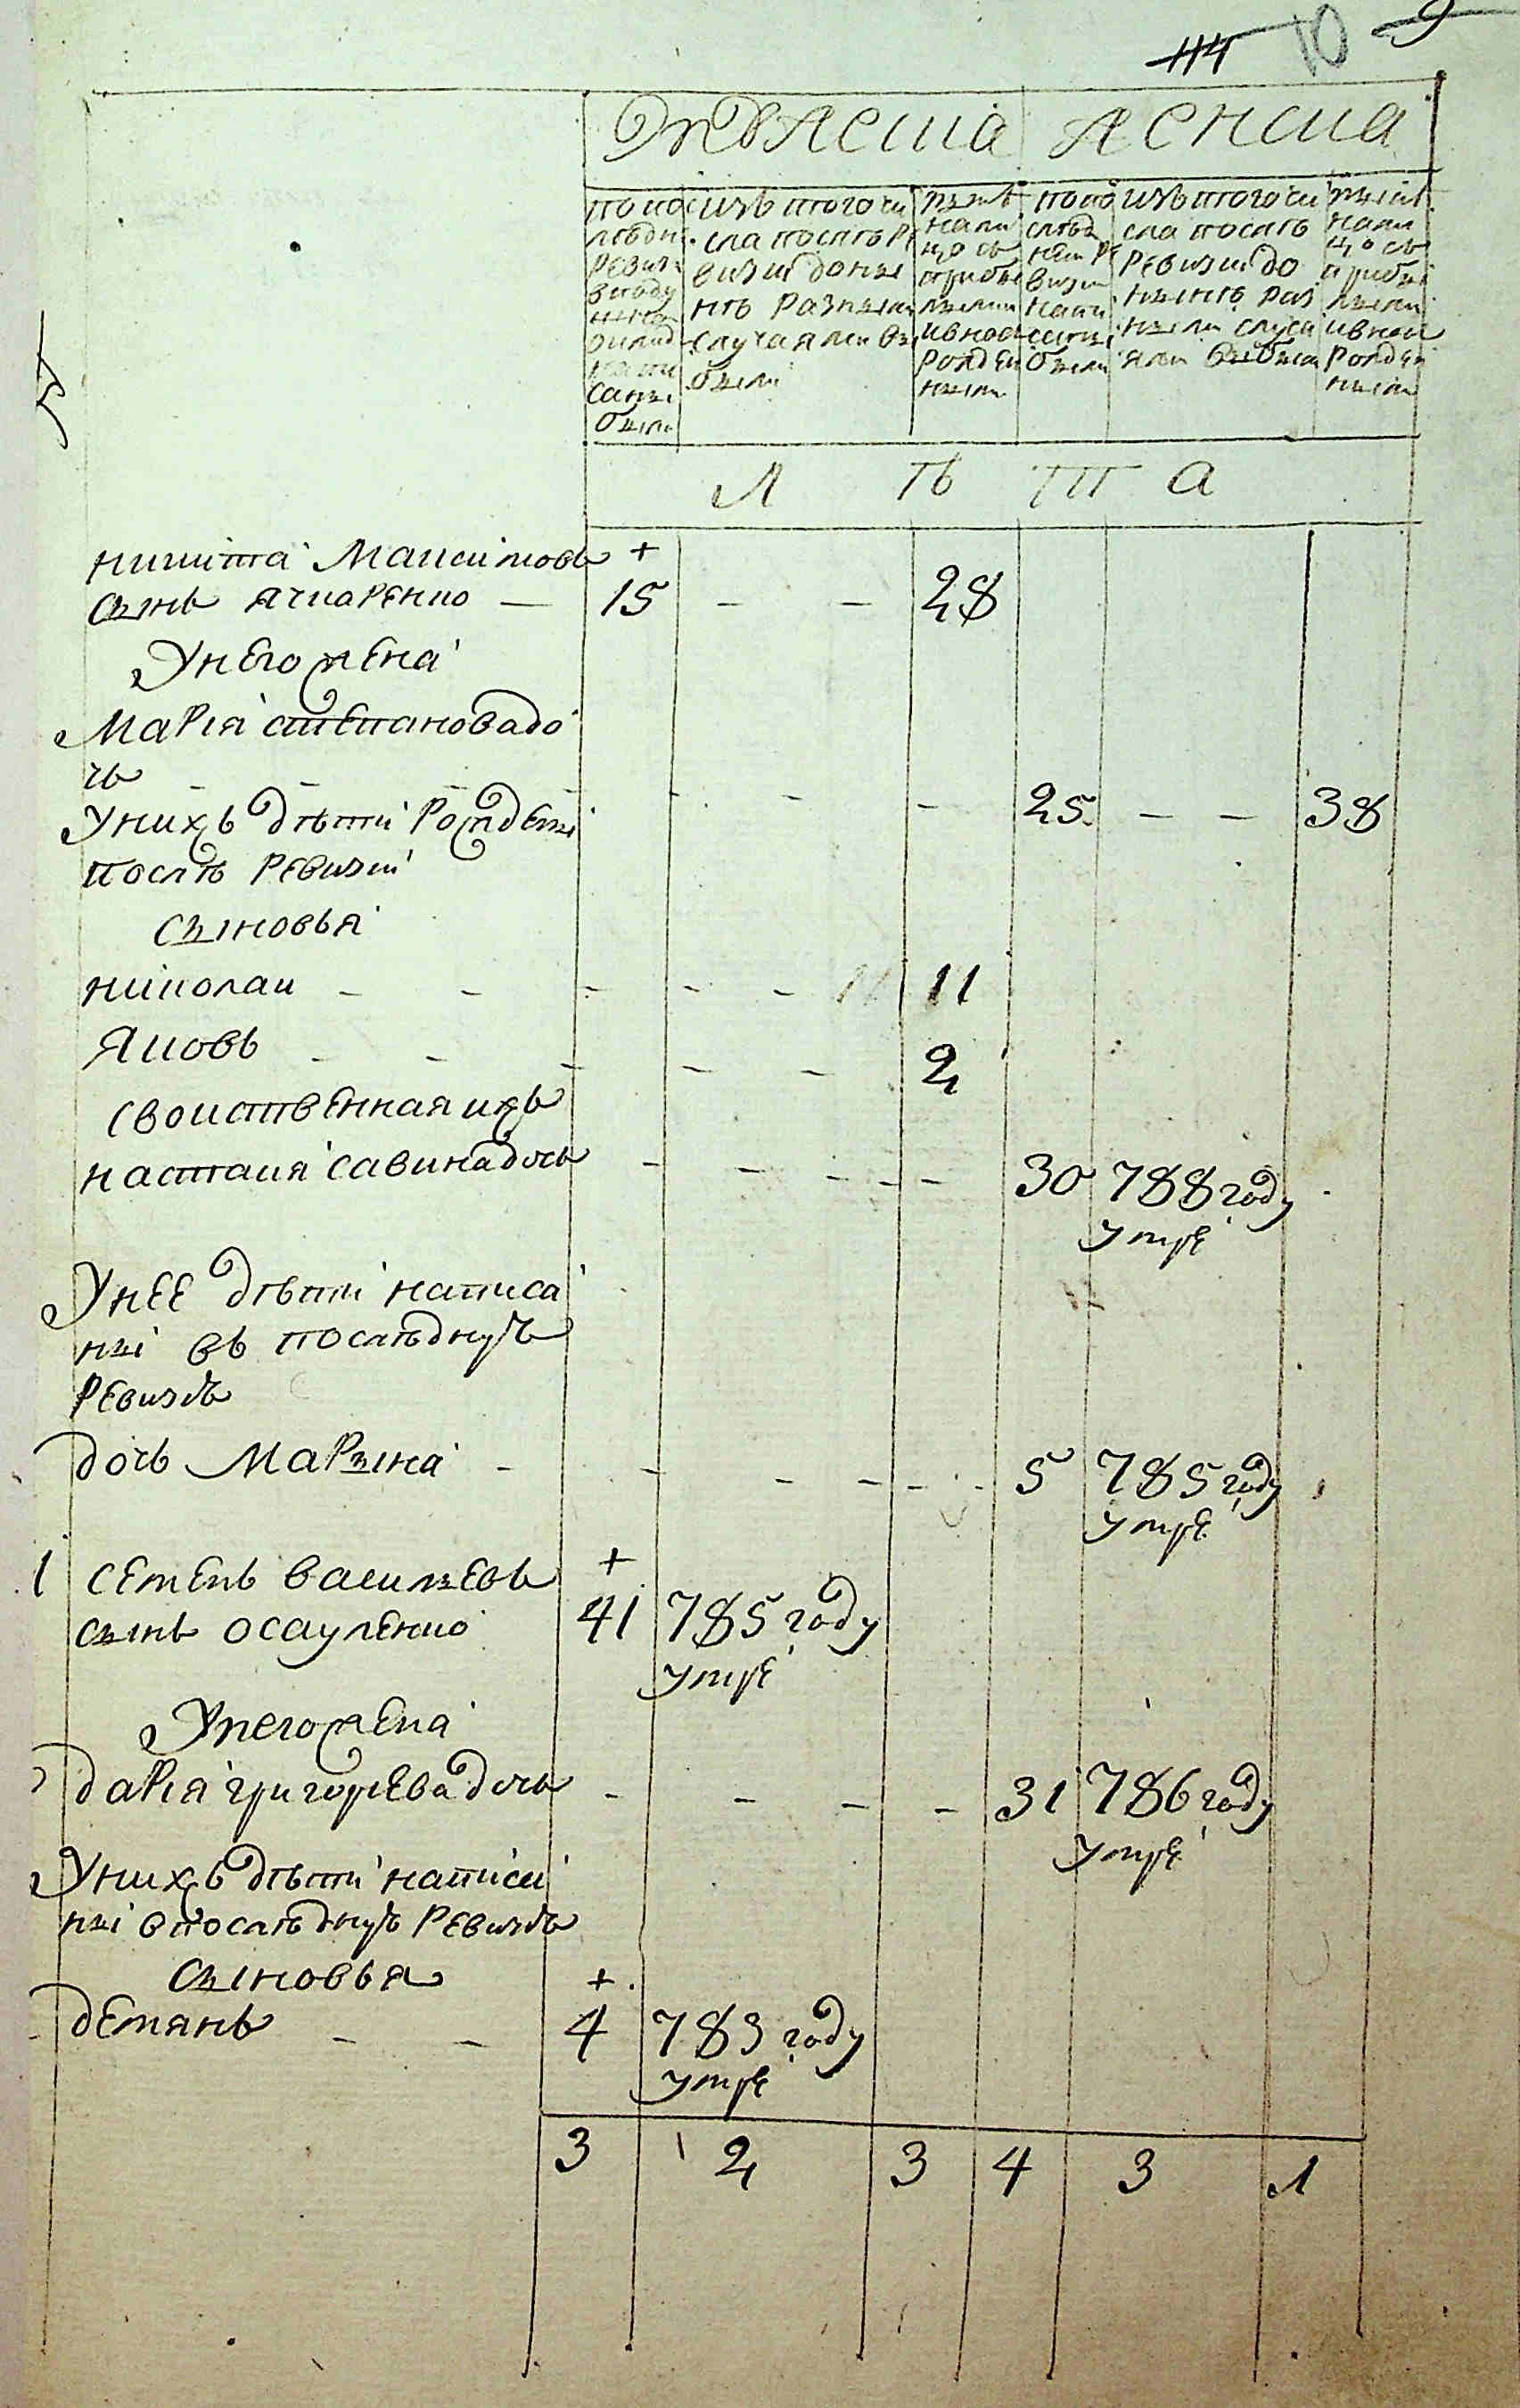 114 10 9
Мужеска Женска
По по
следн
ревизи
саны
были
изъ того чи
сла после ре
визии до ны
не разными
случаями вы
были
ныне
нали
цо съ
прибы
лыми
и вно
рожден
ными
по по
след
ней ре
визии
напи
саны
были
изъ того чи
сла после
ревизии до
ныне раз
ными случа
ями выбыли
ныне
нали
цо съ
прибы
лыми
и вно
рожден
ными
Л Ѣ Т А
никита Максимовъ +
сынъ ячкаренко — 15 - - 28
У него жена
Марія степанова до
чь - - - - - - 25 - - 38
У нихъ дѣти рожденні
послѣ ревизіи
сыновья
николаи - - - - - 11 11
Яковъ - - - - - 2
свойственная ихъ
настасія савина дочь - - - - - 30 788 году
умре
У нее дѣти написа
ні въ послѣднуюъ
ревизію
дочь Марына - - - - - - 5 785 году
умре
1 семенъ васильевъ +
сынъ осауленко 41 785 году
умре
У него жена
дарія григорьева дочь - - - - 31 786 году
умре
У нихъ дѣти написа
ні в послѣднуюъ ревизію
сыновья +
демянъ - - 4 783 году
умре
3 2 3 4 3 1